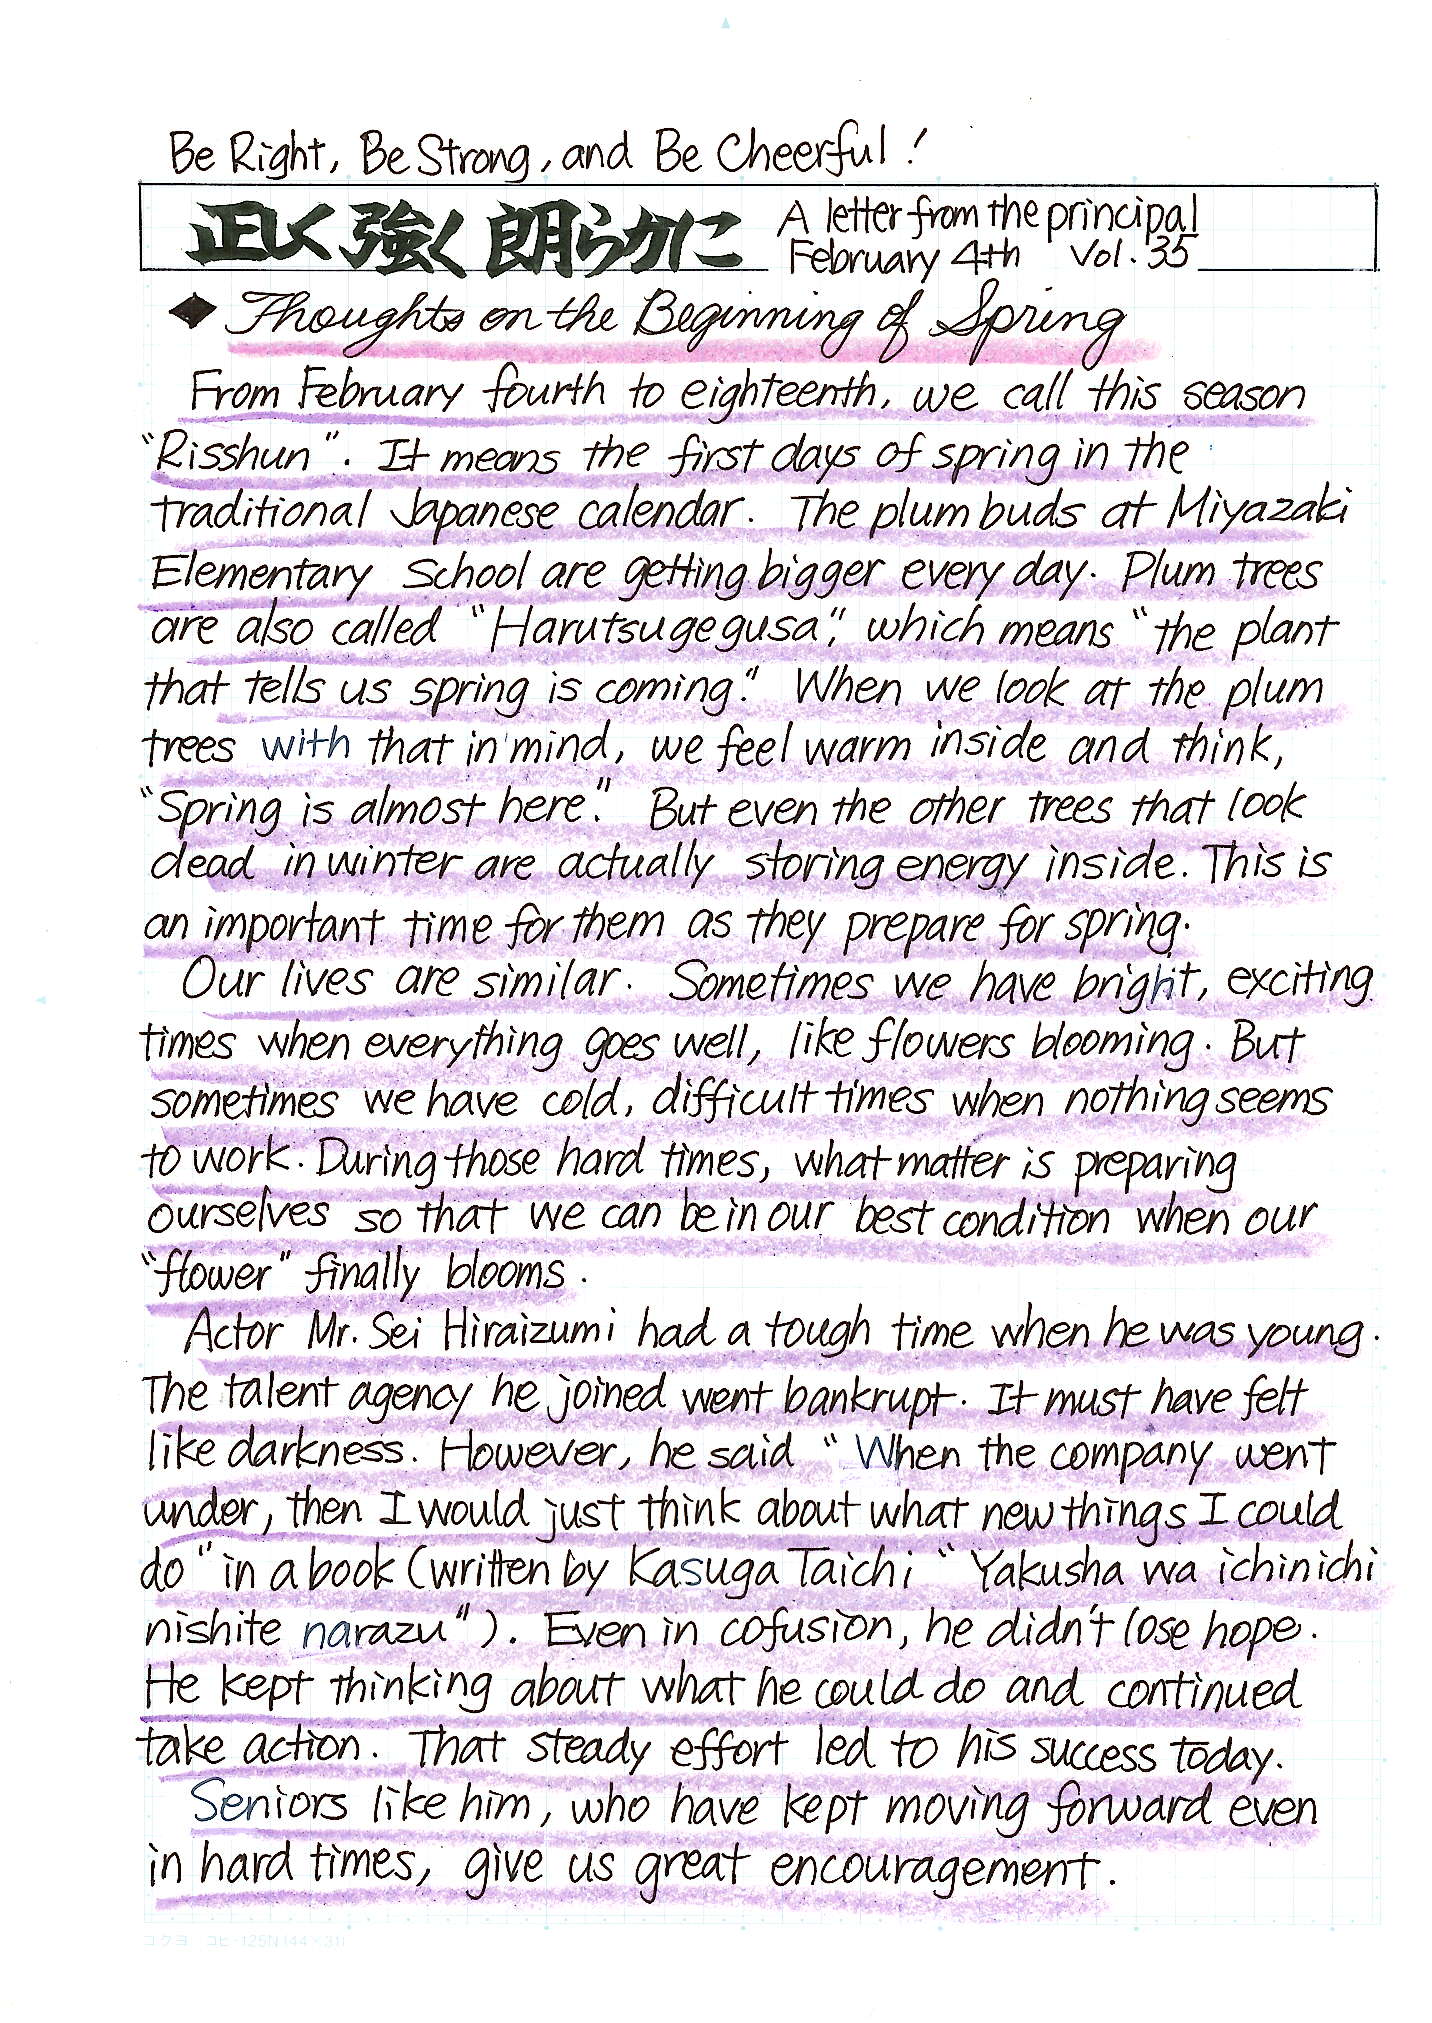 Be Right, Be Strong, and Be Cheerful!
正しく強く朗らかに
A letter from the principal
February 4th Vol. 35
◆ Thoughts on the Beginning of Spring
From February fourth to eighteenth, we call this season
"Risshun". It means the first days of spring in the
traditional Japanese calendar. The plum buds at Miyazaki
Elementary School are getting bigger every day. Plum trees
are also called "Harutsugegusa", which means "the plant
that tells us spring is coming." When we look at the plum
trees with that in mind, we feel warm inside and think,
"Spring is almost here." But even the other trees that look
dead in winter are actually storing energy inside. This is
an important time for them as they prepare for spring.
Our lives are similar. Sometimes we have bright, exciting
times when everything goes well, like flowers blooming. But
sometimes we have cold, difficult times when nothing seems
to work. During those hard times, what matter is preparing
ourselves so that we can be in our best condition when our
"flower" finally blooms.
Actor Mr. Sei Hiraizumi had a tough time when he was young.
The talent agency he joined went bankrupt. It must have felt
like darkness. However, he said "When the company went
under, then I would just think about what new things I could
do" in a book (written by Kasuga Taichi "Yakusha wa ichinichi
nishite narazu"). Even in cofusion, he didn't lose hope.
He kept thinking about what he could do and continued
take action. That steady effort led to his success today.
Seniors like him, who have kept moving forward even
in hard times, give us great encouragement.
コクヨ コヒ-125N (44×31)